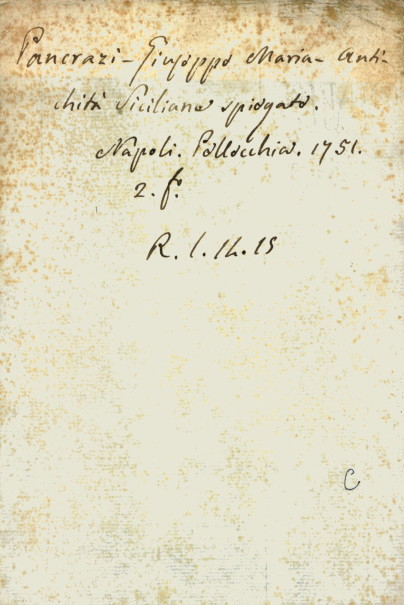 Pancrazi - Giuseppe Maria - Anti-
chità Siciliane spiegate.
Napoli. Pellecchia. 1751.
2. fo.
R. l. 14. 15
C